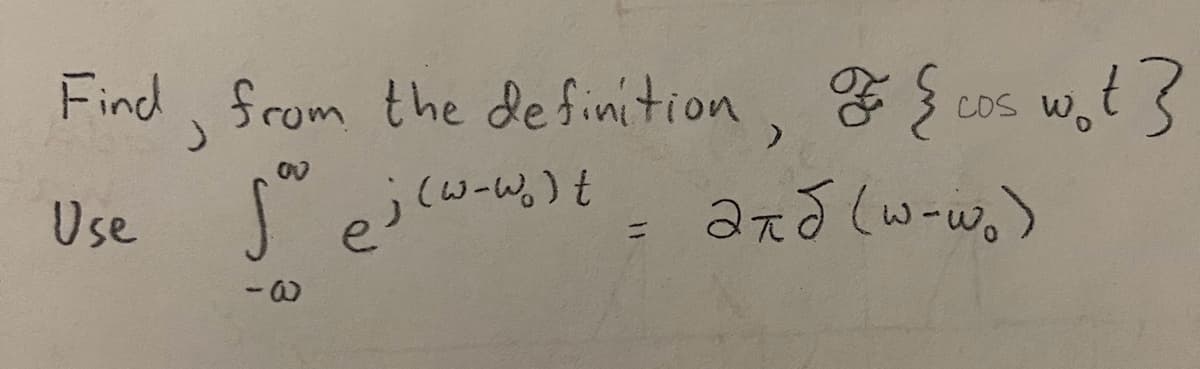 Find, from the definition, ℱ{cos w₀t}
Use ∫_{-∞}^{∞} e^{j(w-w₀)t} = 2πδ(w-w₀)